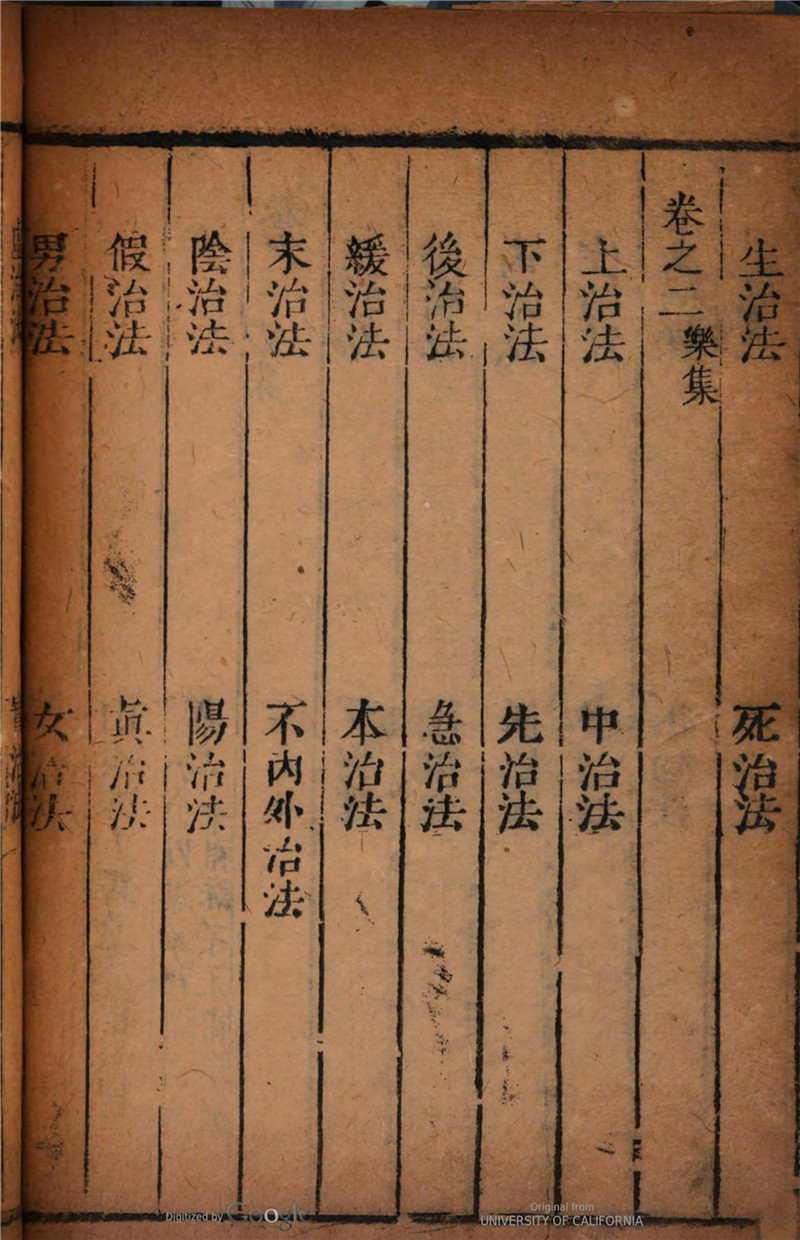 生治法　死治法
卷之二 樂集
上治法　中治法
下治法　先治法
後治法　急治法
緩治法　本治法
末治法　不內外治法
陰治法　陽治法
假治法　眞治法
男治法　女治法
Digitized by Google
Original from
UNIVERSITY OF CALIFORNIA